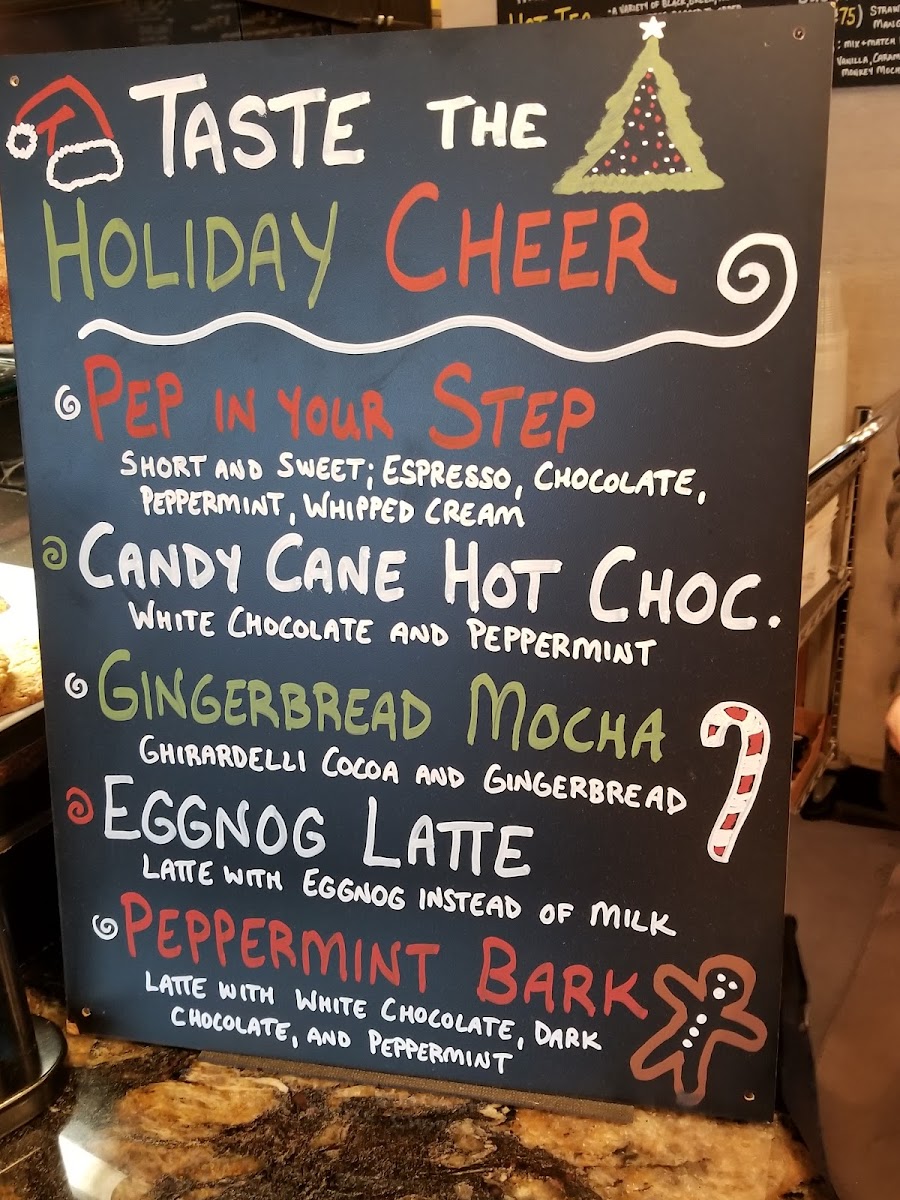 Hot Tea
*A VARIETY OF BLACK, GREEN,
75) STRAW
MANG
: MIX+MATCH
VANILLA, CARAM
MONKEY MOCH
TASTE THE
HOLIDAY CHEER
PEP IN YOUR STEP
SHORT AND SWEET; ESPRESSO, CHOCOLATE,
PEPPERMINT, WHIPPED CREAM
CANDY CANE HOT CHOC.
WHITE CHOCOLATE AND PEPPERMINT
GINGERBREAD MOCHA
GHIRARDELLI COCOA AND GINGERBREAD
EGGNOG LATTE
LATTE WITH EGGNOG INSTEAD OF MILK
PEPPERMINT BARK
LATTE WITH WHITE CHOCOLATE, DARK
CHOCOLATE, AND PEPPERMINT